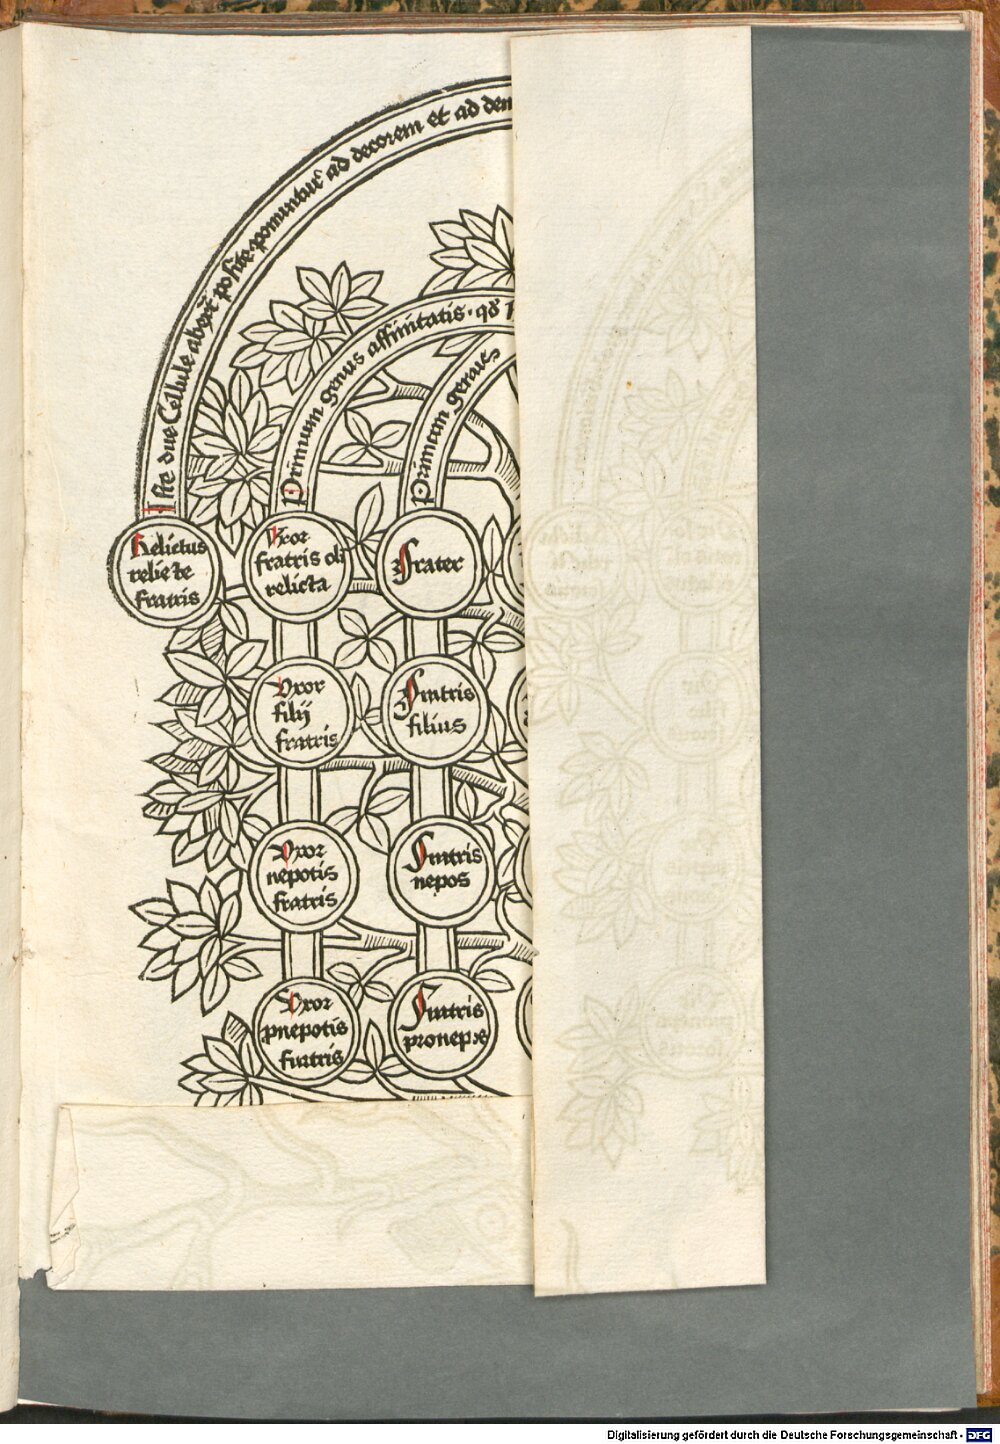 Iste due Cellule aberr̃t posite ponuntur̃ ad decorem et ad den
Primum genus affinitatis · qđ
Primum genus
Relictus
relicte
fratris
Uxor
fratris ol̃
relicta
Frater
Uxor
filij
fratris
Fratris
filius
Uxor
nepotis
fratris
Fratris
nepos
Uxor
pnepotis
fratris
Fratris
pronepos
Digitalisierung gefördert durch die Deutsche Forschungsgemeinschaft - DFG